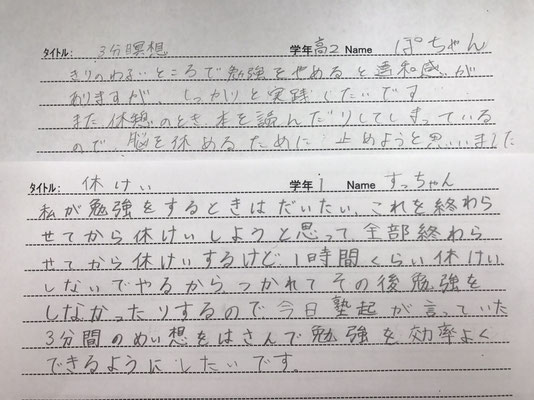 タイトル: 3分瞑想 学年 高2 Name ぽちゃん
きりのわるいところで勉強をやめると違和感が
ありますが、しっかりと実践したいです
また休憩のとき本を読んだりしてしまっている
ので、脳を休めるために 止めようと思いました
タイトル: 休けい 学年 j Name すっちゃん
私が勉強をするときはだいたい、これを終わら
せてから休けいしようと思って全部終わら
せてから休けいするけど、1時間くらい休けい
しないでやるからつかれてその後勉強を
しなかったりするので今日塾起が言っていた
3分間のめい想をはさんで勉強を効率よく
できるようにしたいです。